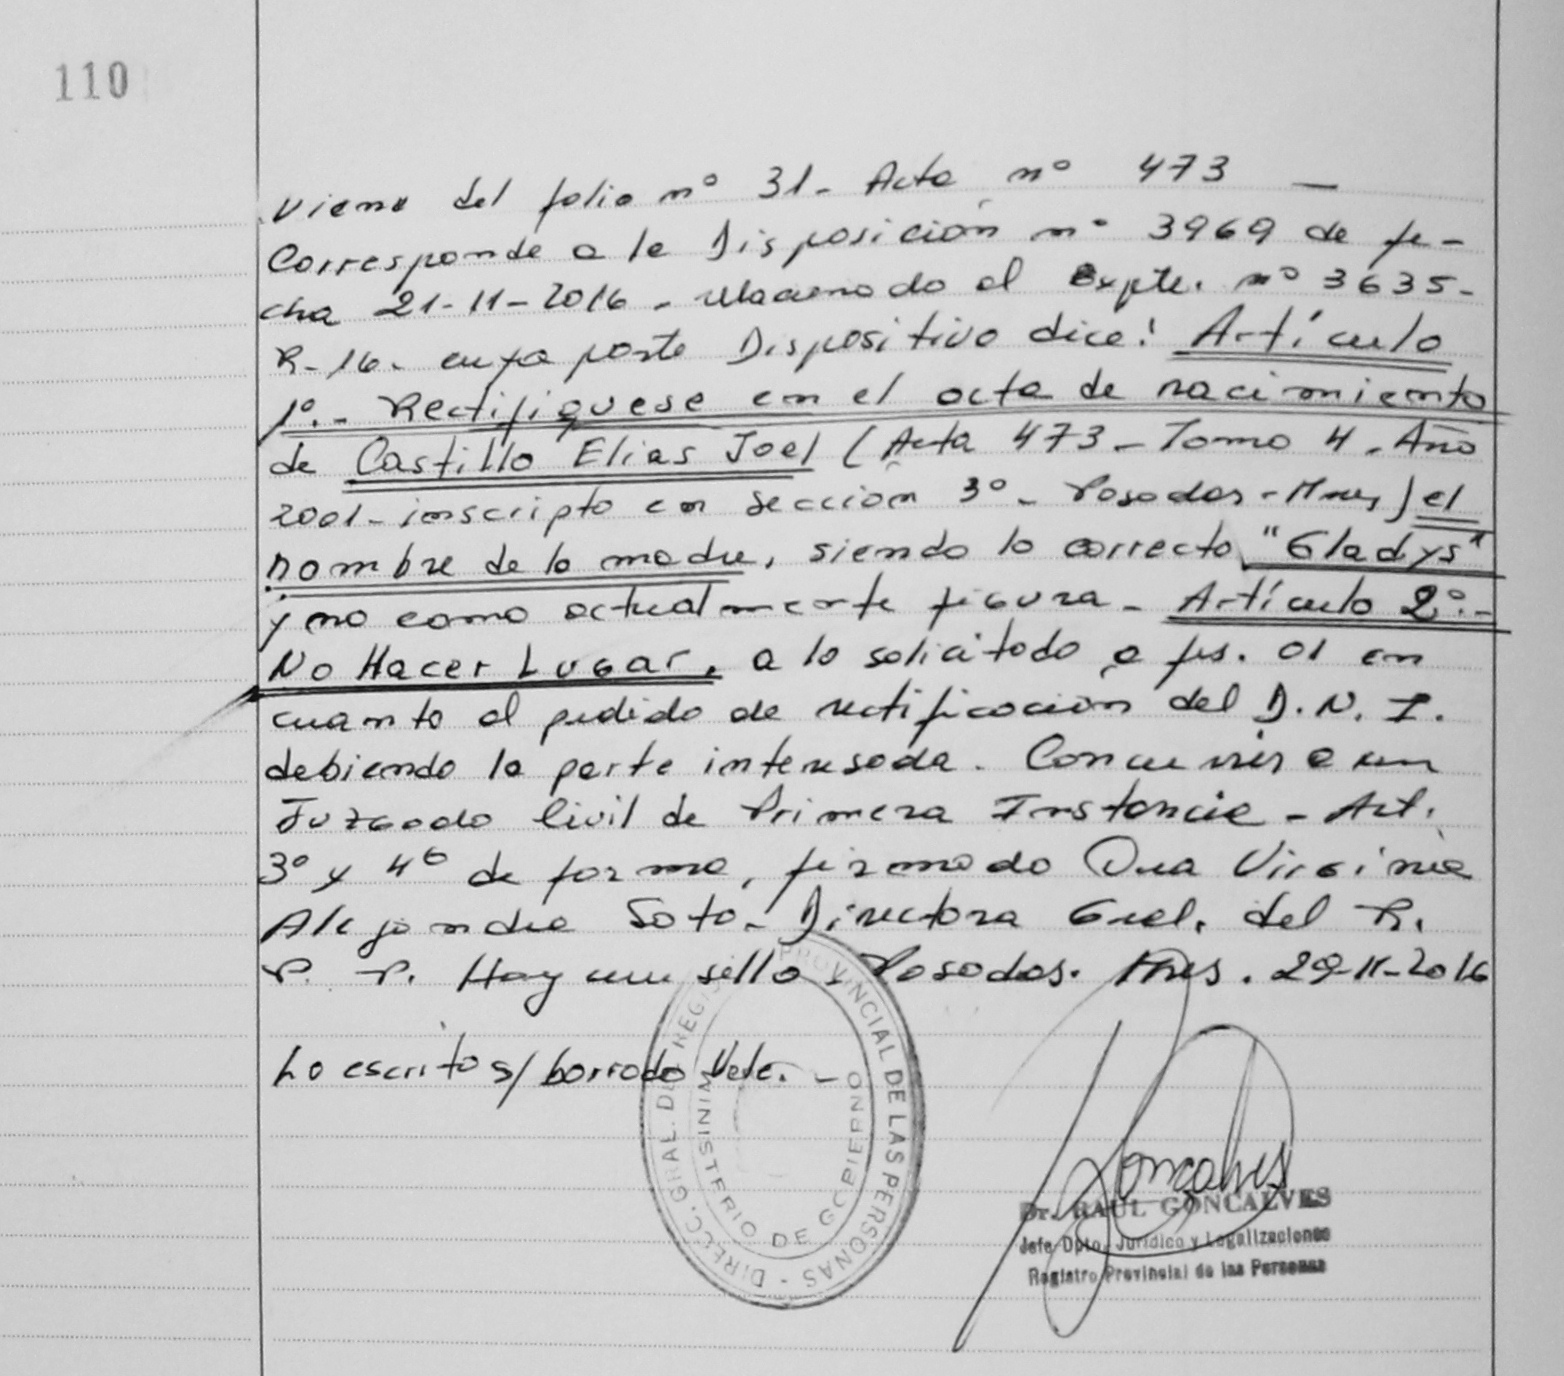 110
Viene del folio nº 31- Acta nº 473 —
Corresponde a la Disposición nº 3969 de fe-
cha 21-11-2016 - relacionado al Expte. nº 3635-
R-16- cuya parte Dispositivo dice: Artículo
1º.- Rectifiquese en el acta de nacimiento
de Castillo Elias Joel (Acta 473 - Tomo 4 - Año
2001 - inscripto en Sección 3º - Posadas - Mnes) el
nombre de la madre, siendo lo correcto "Gladys"
y no como actualmente figura - Artículo 2º.-
No Hacer Lugar, a lo solicitado a fs. 01 en
cuanto al pedido de rectificación del D. N. I.
debiendo la parte interesada. Concurrir a un
Juzgado Civil de Primera Instancia - Art.
3º y 4º de forma, firmado Dra Virginia
Alejandra Soto - Directora Gral. del R.
P. P. Hay un sello - Posadas. Mnes. 29-11-2016
Lo escrito s/ borrado Vale. -
DIRECC. GRAL. DEL REGIS PROVINCIAL DE LAS PERSONAS -
MINISTERIO DE GOBIERNO
Goncalves
Dr. RAUL GONCALVES
Jefe Dpto. Jurídico y Legalizaciones
Registro Provincial de las Personas